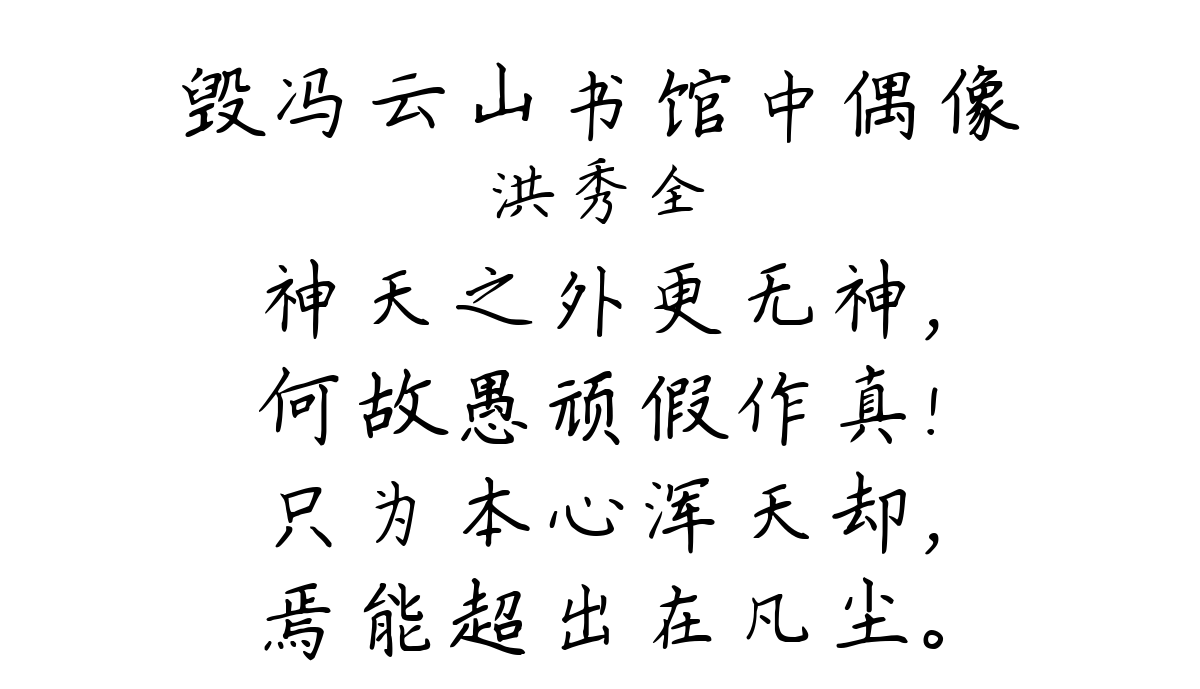 毁冯云山书馆中偶像
洪秀全
神天之外更无神，
何故愚顽假作真！
只为本心浑天却，
焉能超出在凡尘。